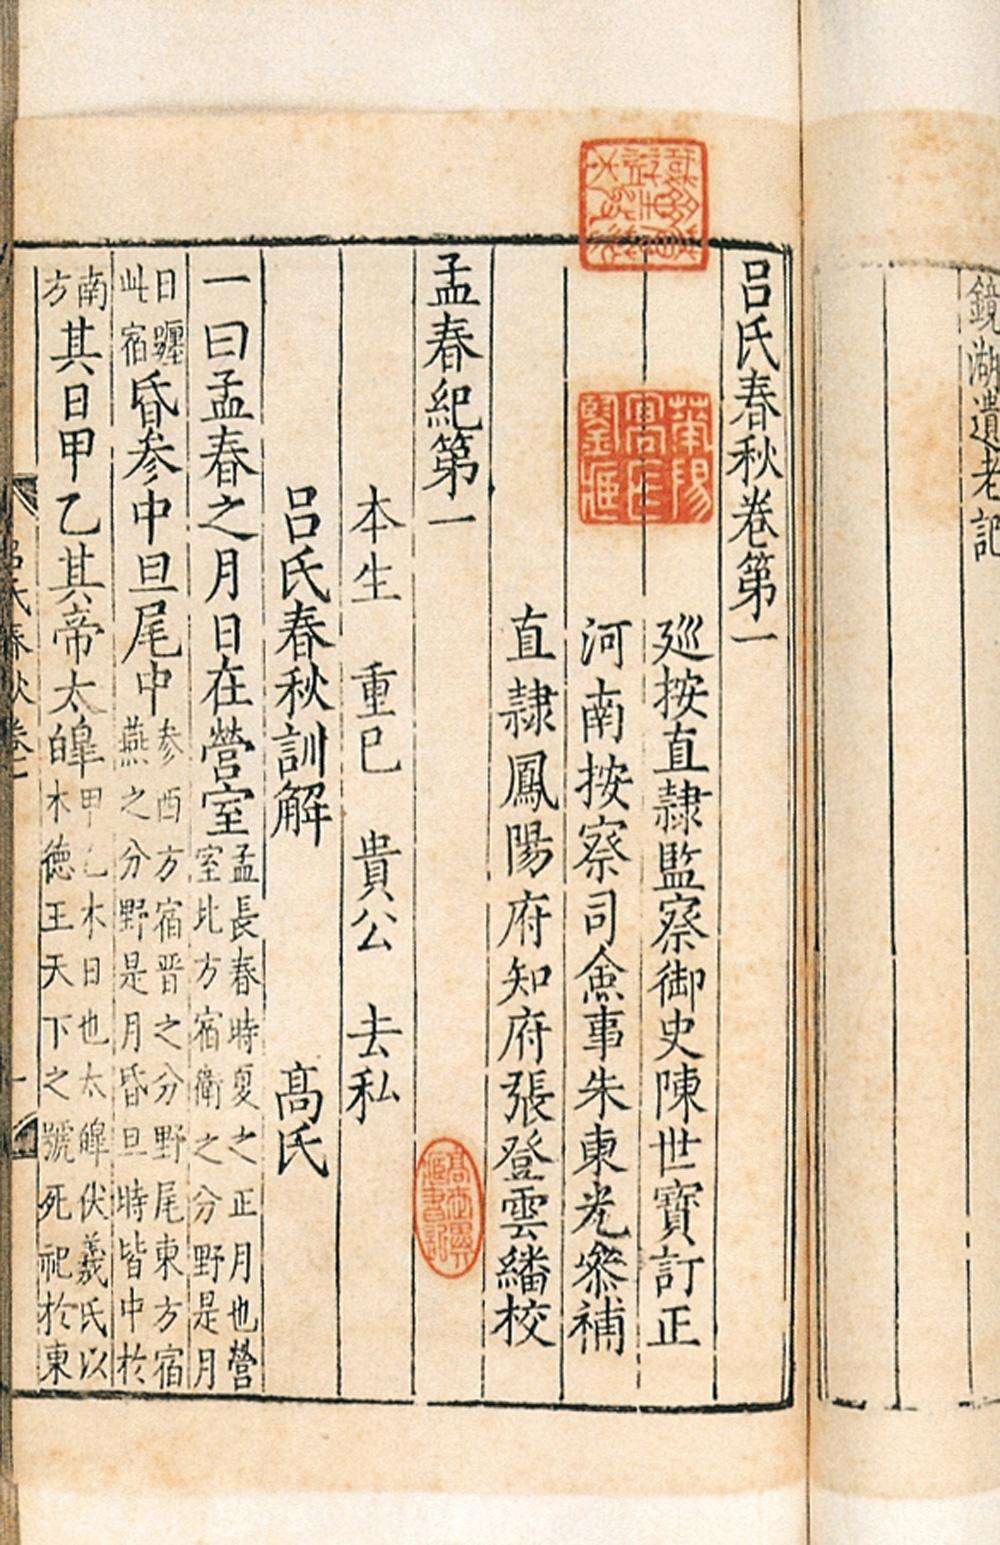 鏡湖遺老記
呂氏春秋卷第一
廵按直隷監察御史陳世寶訂正
河南按察司僉事朱東光叅補
直隷鳳陽府知府張登雲繙校
孟春紀第一
本生　重巳　貴公　去私
呂氏春秋訓解　髙氏
一曰孟春之月日在營室孟長春時夏之正月也營
室北方宿衛之分野是月
日躔
此宿昏参中旦尾中参西方宿晋之分野尾東方宿
燕之分野是月昏旦時皆中於
南
方其日甲乙其帝太皥甲乙木日也太皥伏羲氏以
木德王天下之號死祀於東
呂氏春秋卷一
一